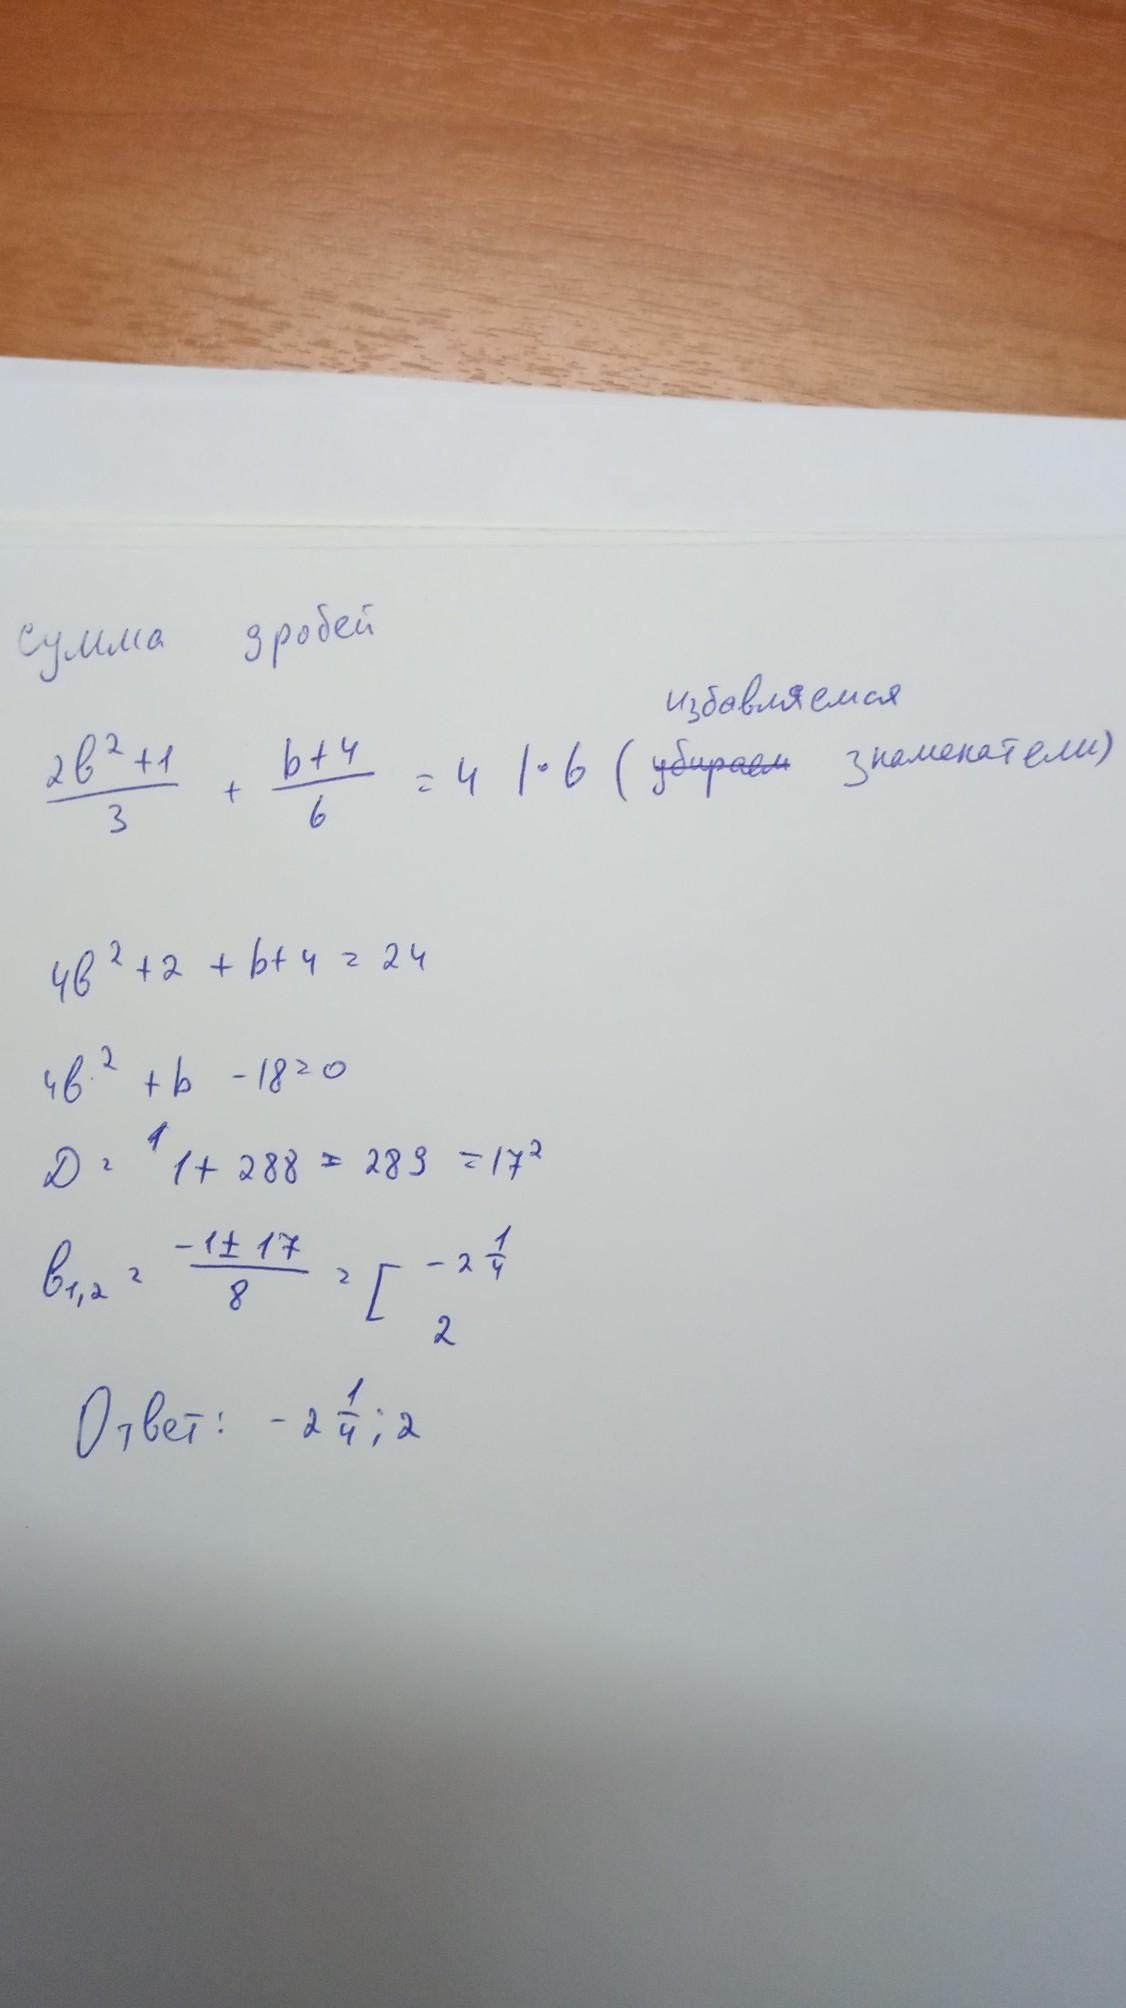 сумма дробей
избавляемся
(2b²+1)/3 + (b+4)/6 = 4 |·6 (убираем знаменатели)
4b² + 2 + b + 4 = 24
4b² + b - 18 = 0
D = 1 1 + 288 = 289 = 17²
b1,2 = (-1 ± 17)/8 = [ -2 1/4
2
Ответ: -2 1/4; 2